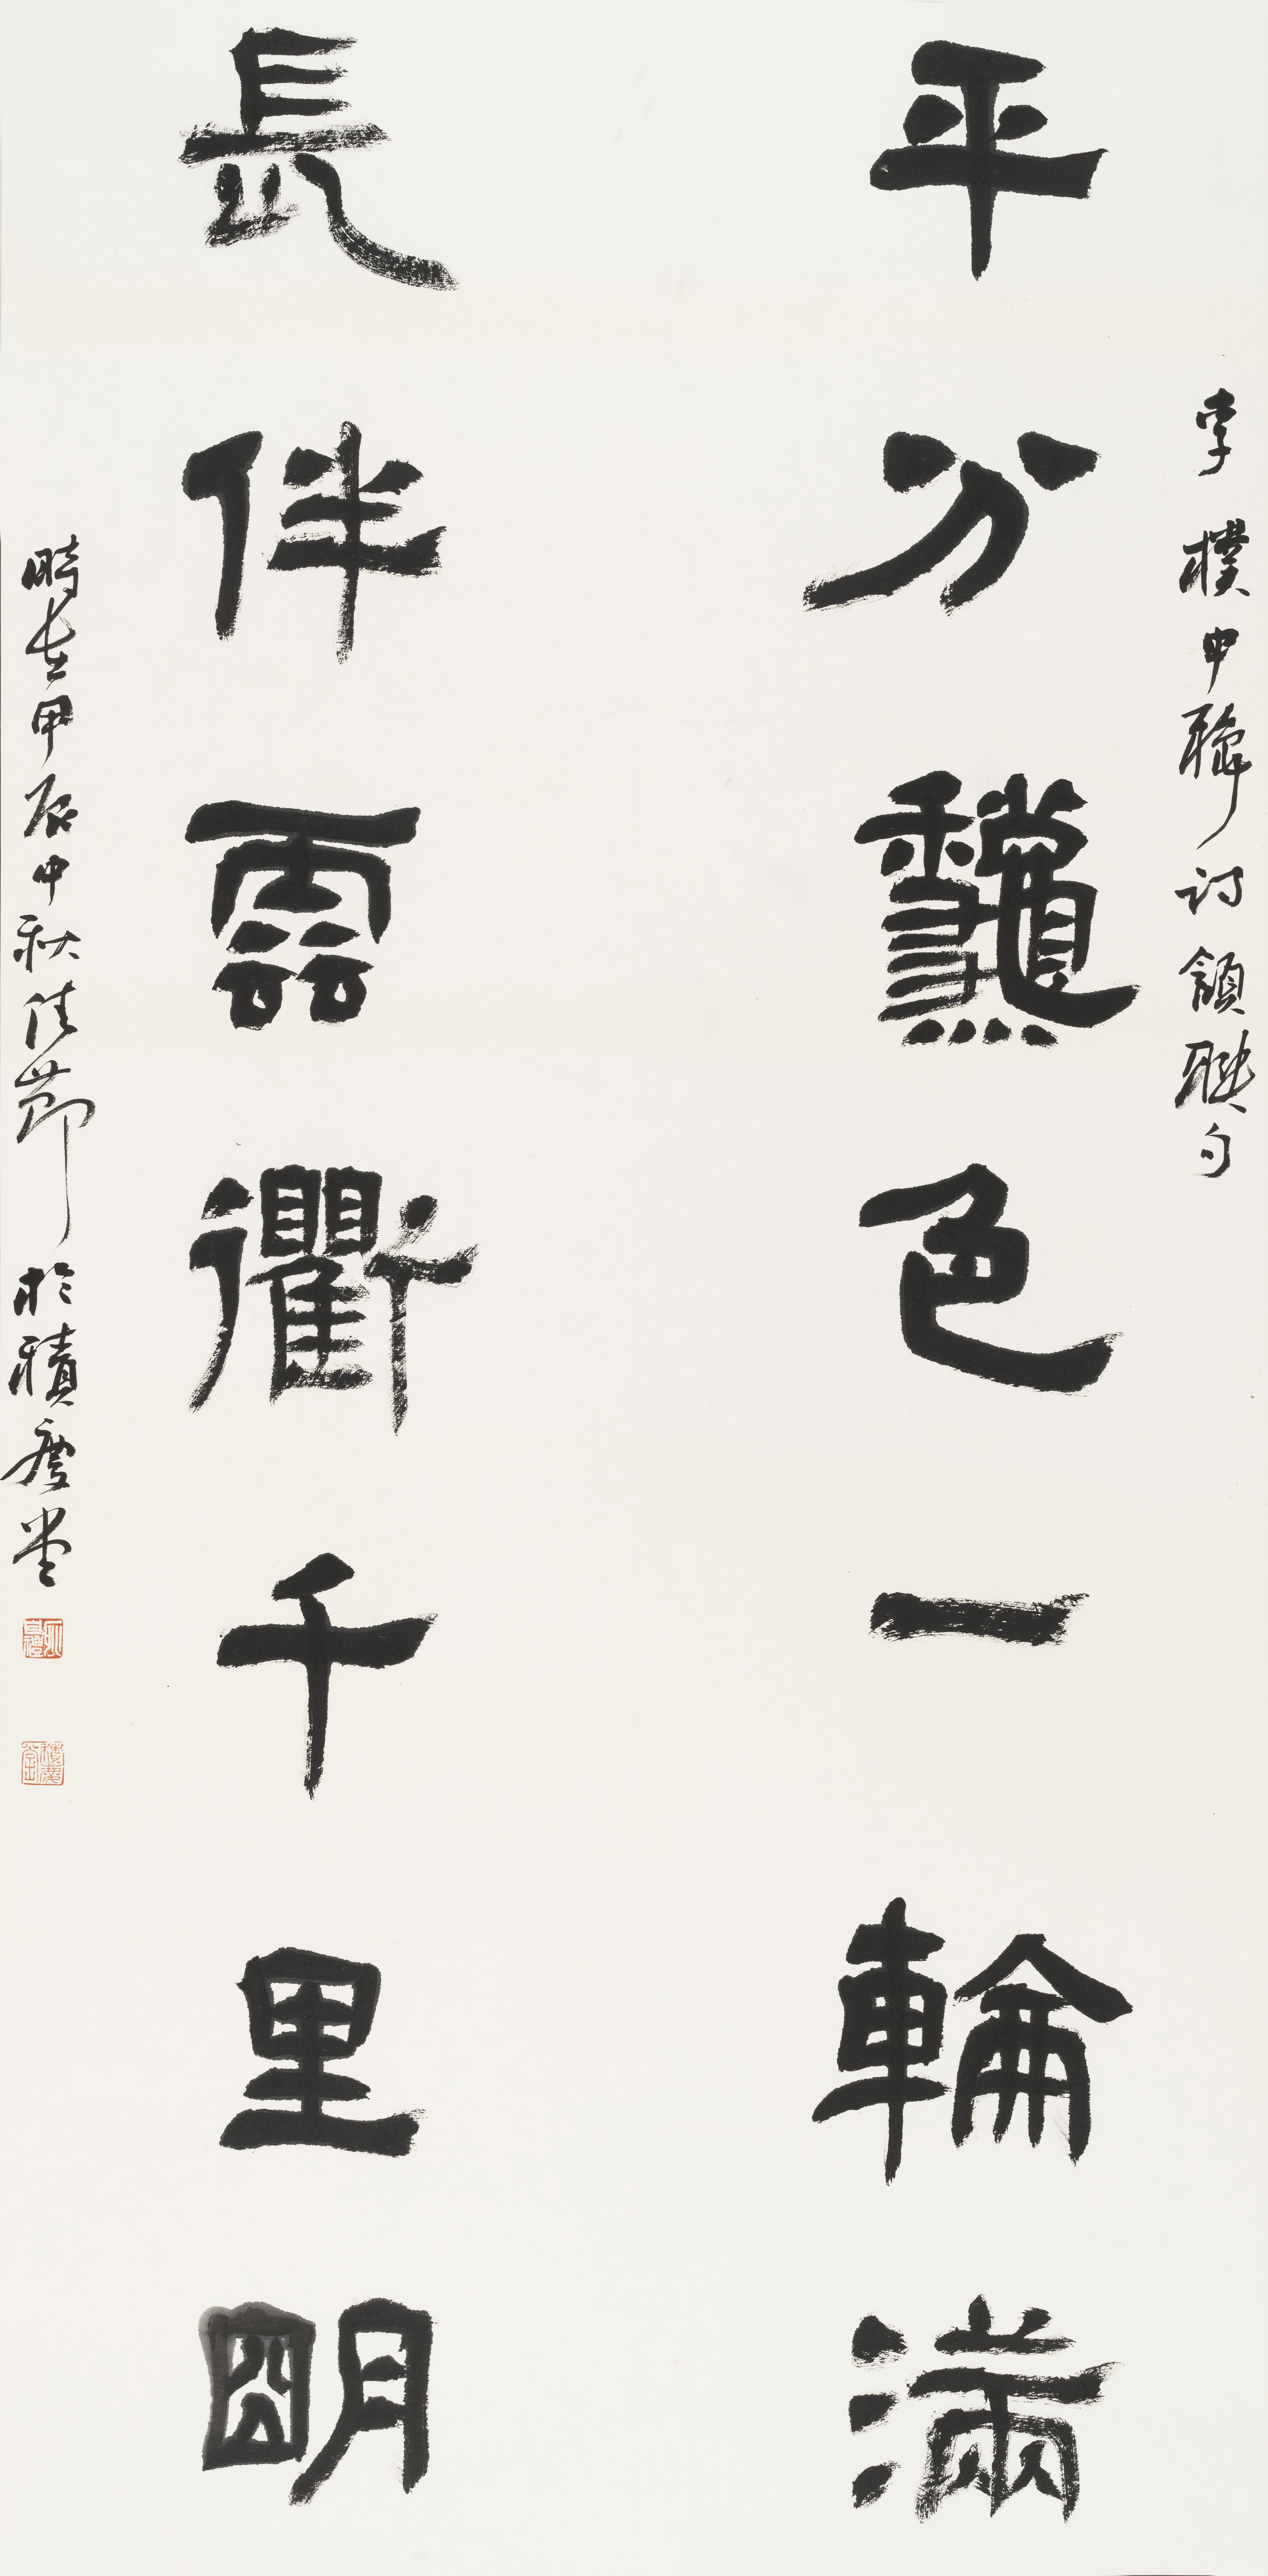 李樸中龝詩頷聯句
平分龝色一輪滿
長伴雲衢千里明
時在甲辰中秋佳節於積慶堂
積慶堂